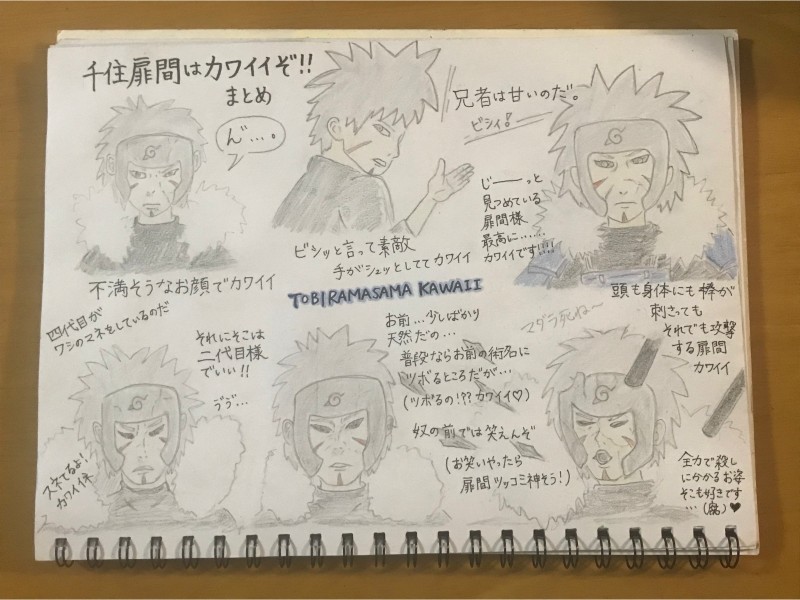 千住扉間はカワイイぞ!!
まとめ
ん゛…。
不満そうなお顔でカワイイ
兄者は甘いのだ。
ビシィ!
ビシッと言って素敵
手がシェッとしててカワイイ
じーーっと
見つめている
扉間様
最高に……
カワイイです!!!!
TOBIRAMASAMA KAWAII
四代目が
ワシのマネをしているのだ
それにそこは
二代目様
でいい!!
ゔゔ…
スネてるよ!
カワイイネ
お前…少しばかり
天然だの…
普段ならお前の術名に
ツボるところだが…
(ツボるの!??カワイイ♡)
奴の前では笑えんぞ
(お笑いやったら
扉間ツッコミ神そう!)
マダラ死ね〜
頭も身体にも棒が
刺さっても
それでも攻撃
する扉間
カワイイ
全力で殺し
にかかるお姿
そこも好きです
…(腐)♥